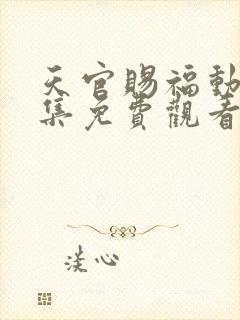 天官賜福動
集免費觀看
淡心